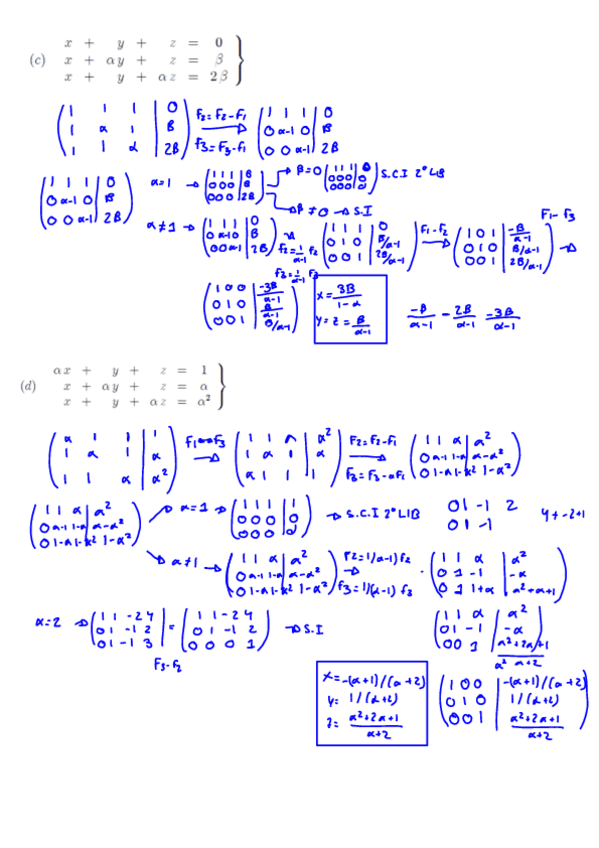 (c) x + y + z = 0
x + αy + z = β
x + y + αz = 2β
( 1 1 1 | 0
1 α 1 | B
1 1 α | 2B ) F2=F2-F1 F3=F3-F1 ( 1 1 1 | 0
0 α-1 0 | B
0 0 α-1 | 2B )
( 1 1 1 | 0
0 α-1 0 | B
0 0 α-1 | 2B ) α=1 → ( 1 1 1 | B
0 0 0 | B
0 0 0 | 2B ) → β=0 ( 1 1 1 | 0
0 0 0 | 0
0 0 0 | 0 ) S.C.I 2º LIB
→ β≠0 → S.I
α≠1 → ( 1 1 1 | 0
0 α-1 0 | B
0 0 α-1 | 2B ) f2=1/α-1 f2 f3=1/α-1 F3 ( 1 1 1 | 0
0 1 0 | B/α-1
0 0 1 | 2B/α-1 ) F1-F2 → ( 1 0 1 | -B/α-1
0 1 0 | B/α-1
0 0 1 | 2B/α-1 ) F1-F3 →
( 1 0 0 | -3B/α-1
0 1 0 | B/α-1
0 0 1 | B/α-1 ) x = 3B/1-α
y = z = B/α-1
-B/α-1 - 2B/α-1 -3B/α-1
(d) αx + y + z = 1
x + αy + z = α
x + y + αz = α²
( α 1 1 | 1
1 α 1 | α
1 1 α | α² ) F1↔F3 → ( 1 1 α | α²
1 α 1 | α
α 1 1 | 1 ) F2=F2-F1 F3=F3-αF1 → ( 1 1 α | α²
0 α-1 1-α | α-α²
0 1-α 1-α² | 1-α² )
( 1 1 α | α²
0 α-1 1-α | α-α²
0 1-α 1-α² | 1-α² ) → α=1 → ( 1 1 1 | 1
0 0 0 | 0
0 0 0 | 0 ) → S.C.I 2º LIB
0 1 -1 2
0 1 -1
y+-2+1
→ α≠1 → ( 1 1 α | α²
0 α-1 1-α | α-α²
0 1-α 1-α² | 1-α² ) F2=1/α-1) f2 f3=1/(α-1) f3 → ( 1 1 α | α²
0 1 -1 | -α
0 1 1+α | α²+α+1 )
α=2 → ( 1 1 -2 4
0 1 -1 2
0 1 -1 3 ) = ( 1 1 -2 4
0 1 -1 2
0 0 0 1 ) → S.I
F3-F2
( 1 1 α | α²
0 1 -1 | -α
0 0 1 | α²+2α+1/α+2 )
x=-(α+1)/(α+2)
y= 1/(α+2)
z= α²+2α+1/α+2
( 1 0 0 | -(α+1)/(α+2)
0 1 0 | 1/(α+2)
0 0 1 | α²+2α+1/α+2 )